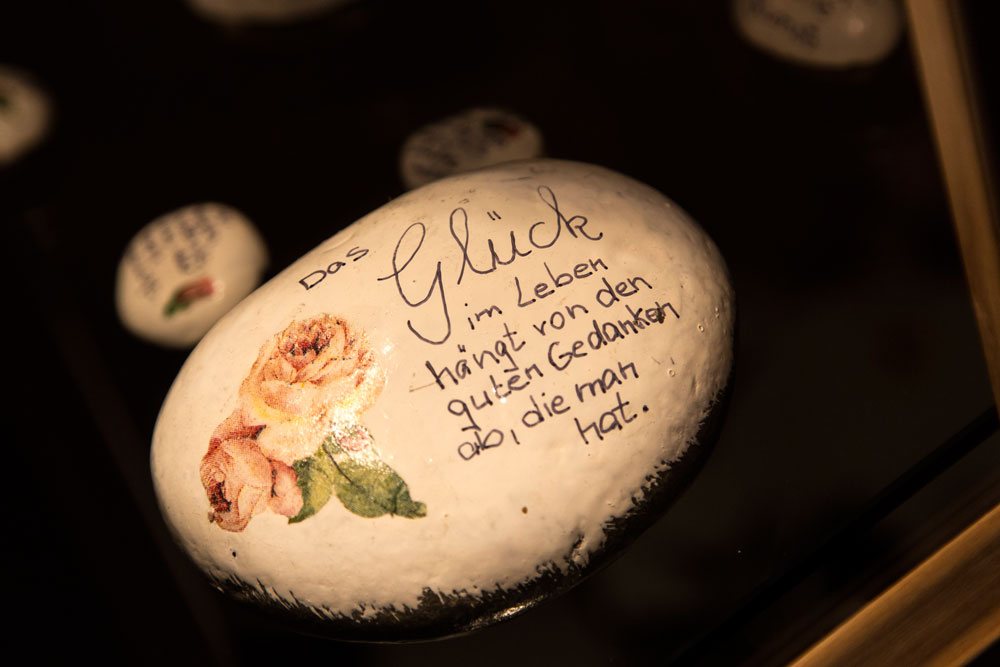 Das Glück
im Leben
hängt von den
guten Gedanken
ab, die man
hat.